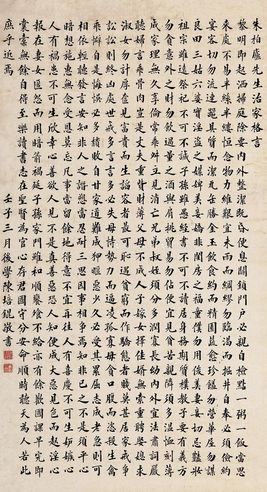 朱柏廬先生治家格言
黎明即起洒掃庭除要內外整潔既昏便息關鎖門戶必親自檢點一粥一飯當思
來處不易半絲半縷恆念物力維艱宜未雨而綢繆勿臨渴而掘井自奉必須儉約
宴客切勿流連器具質而潔瓦缶勝金玉飲食約而精園蔬愈珍饈勿營華屋勿謀
良田三姑六婆實淫盜之媒婢美妾嬌非閨房之福童僕勿用俊美妻妾切忌豔妝
祖宗雖遠祭祀不可不誠子孫雖愚經書不可不讀居身務期質樸教子要有義方
勿貪意外之財勿飲過量之酒與肩挑貿易勿佔便宜見貧苦親鄰須多溫恤刻薄
成家理無久享倫常乖舛立見消亡兄弟叔姪須分多潤寡長幼內外宜法肅辭嚴
聽婦言乖骨肉豈是丈夫重貲財薄父母不成人子嫁女擇佳婿無索重聘娶媳求
淑女勿計厚奩見富貴而生諂容者最可恥遇貧窮而作驕態者賤莫甚居家戒爭
訟訟則終凶處世戒多言言多必失毋恃勢力而凌逼孤寡毋貪口腹而恣殺生禽
乖僻自是悔誤必多頹惰自甘家道難成狎暱惡少久必受其累屈志老成急則可
相依輕聽發言安知非人之譖愬當忍耐三思因事相爭焉知非己之不是須平心
暗想施惠無念受恩莫忘凡事當留餘地得意不宜再往人有喜慶不可生妒嫉心
人有禍患不可生欣幸心善欲人見不是真善惡恐人知便是大惡見色而起淫心
報在妻女匿怨而用暗箭禍延子孫家門雖和順饔飧不給亦有餘歡國課早完即
囊橐無餘自得至樂讀書志在聖賢為官心存君國守分安命順時聽天為人若此
庶乎近焉
壬子三月後學陳培錕敬書